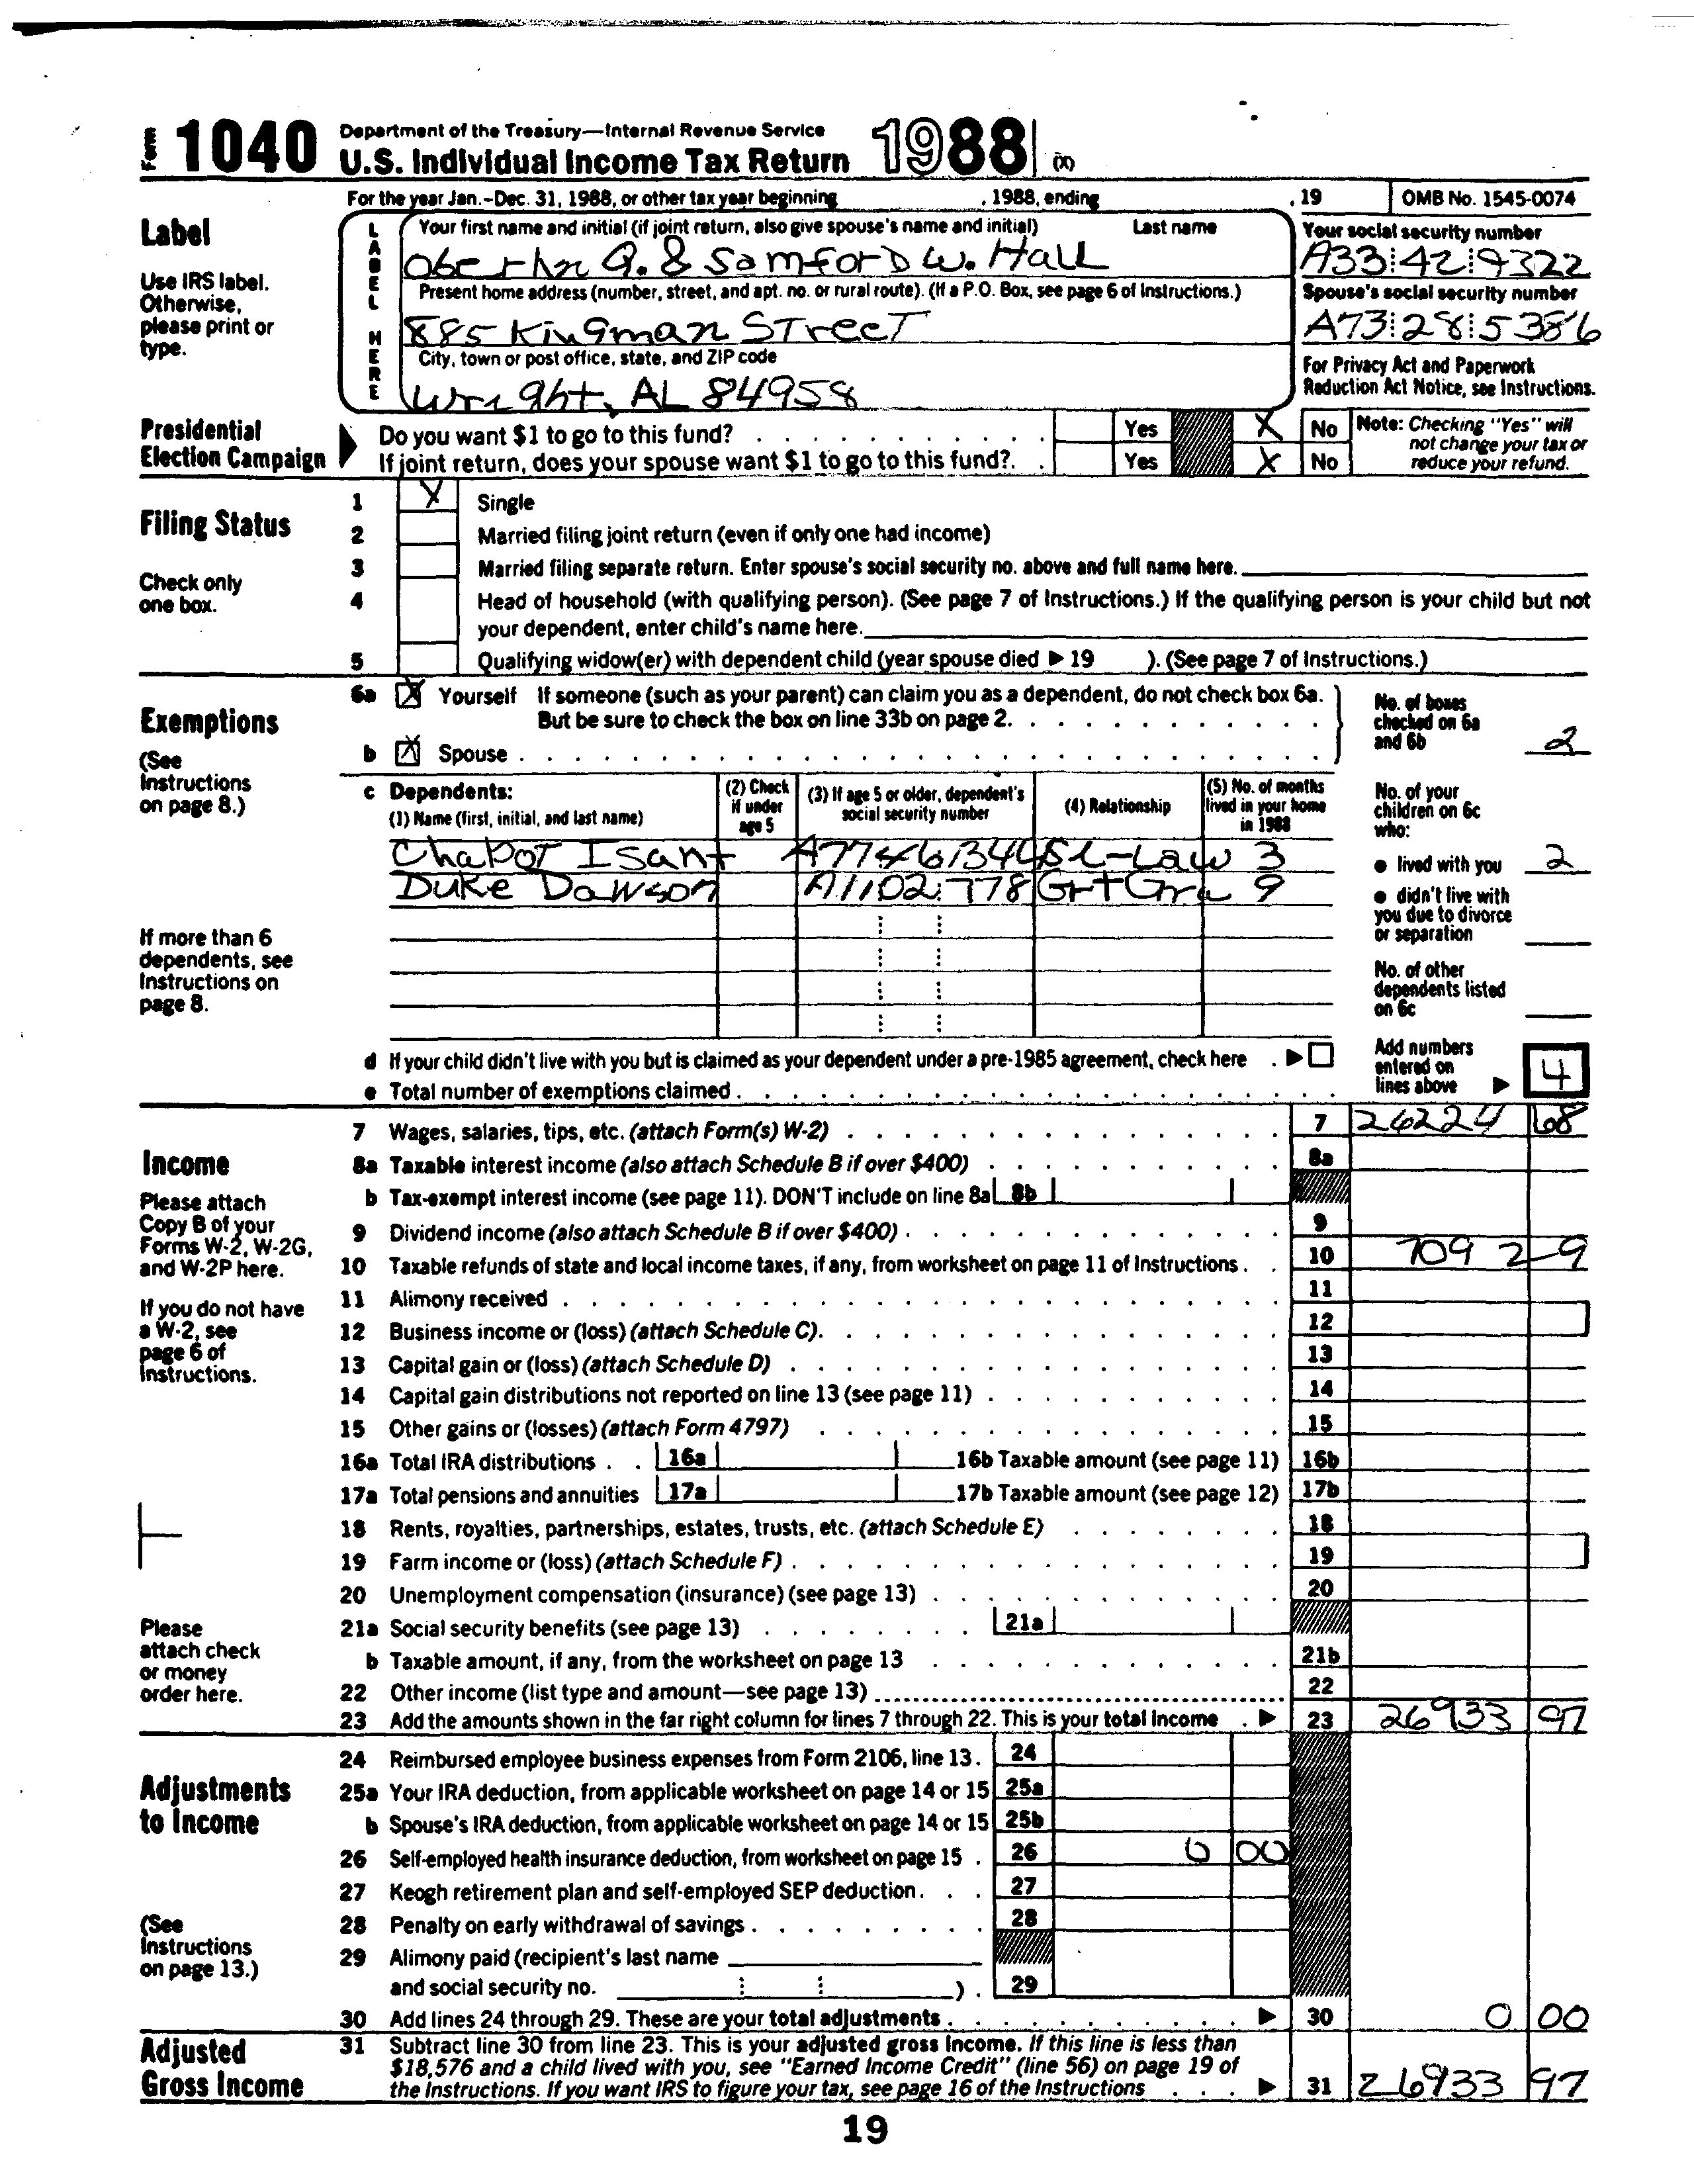 Form 1040 Department of the Treasury—Internal Revenue Service
U.S. Individual Income Tax Return 1988 (X)
For the year Jan.-Dec. 31, 1988, or other tax year beginning , 1988, ending , 19 OMB No. 1545-0074
Label
Use IRS label.
Otherwise,
please print or
type.
LABEL HERE
Your first name and initial (if joint return, also give spouse's name and initial) Last name
Oberlin Q. & Samford W. Hall
Your social security number
A33 42 9322
Present home address (number, street, and apt. no. or rural route). (If a P.O. Box, see page 6 of Instructions.)
885 Kingman Street
Spouse's social security number
A73 28 5386
City, town or post office, state, and ZIP code
Wright, AL 84958
For Privacy Act and Paperwork
Reduction Act Notice, see Instructions.
Presidential
Election Campaign
Do you want $1 to go to this fund? Yes X No
If joint return, does your spouse want $1 to go to this fund? Yes X No
Note: Checking "Yes" will
not change your tax or
reduce your refund.
Filing Status
Check only
one box.
1 X Single
2 Married filing joint return (even if only one had income)
3 Married filing separate return. Enter spouse's social security no. above and full name here.
4 Head of household (with qualifying person). (See page 7 of Instructions.) If the qualifying person is your child but not
your dependent, enter child's name here.
5 Qualifying widow(er) with dependent child (year spouse died ▶ 19 ). (See page 7 of Instructions.)
Exemptions
(See
Instructions
on page 8.)
6a X Yourself If someone (such as your parent) can claim you as a dependent, do not check box 6a.
But be sure to check the box on line 33b on page 2.
b X Spouse
No. of boxes
checked on 6a
and 6b 2
c Dependents:
(1) Name (first, initial, and last name)
(2) Check
if under
age 5
(3) If age 5 or older, dependent's
social security number
(4) Relationship
(5) No. of months
lived in your home
in 1988
Chabot Isant Si-Law 3
Duke Dawson A1102 778 Grt Gra 9
No. of your
children on 6c
who:
● lived with you 2
● didn't live with
you due to divorce
or separation
No. of other
dependents listed
on 6c
If more than 6
dependents, see
Instructions on
page 8.
d If your child didn't live with you but is claimed as your dependent under a pre-1985 agreement, check here ▶
e Total number of exemptions claimed
Add numbers
entered on
lines above ▶ 4
Income
Please attach
Copy B of your
Forms W-2, W-2G,
and W-2P here.
If you do not have
a W-2, see
page 6 of
Instructions.
Please
attach check
or money
order here.
7 Wages, salaries, tips, etc. (attach Form(s) W-2) 7 26224 68
8a Taxable interest income (also attach Schedule B if over $400) 8a
b Tax-exempt interest income (see page 11). DON'T include on line 8a 8b
9 Dividend income (also attach Schedule B if over $400) 9
10 Taxable refunds of state and local income taxes, if any, from worksheet on page 11 of Instructions 10 709 29
11 Alimony received 11
12 Business income or (loss) (attach Schedule C) 12
13 Capital gain or (loss) (attach Schedule D) 13
14 Capital gain distributions not reported on line 13 (see page 11) 14
15 Other gains or (losses) (attach Form 4797) 15
16a Total IRA distributions 16a 16b Taxable amount (see page 11) 16b
17a Total pensions and annuities 17a 17b Taxable amount (see page 12) 17b
18 Rents, royalties, partnerships, estates, trusts, etc. (attach Schedule E) 18
19 Farm income or (loss) (attach Schedule F) 19
20 Unemployment compensation (insurance) (see page 13) 20
21a Social security benefits (see page 13) 21a
b Taxable amount, if any, from the worksheet on page 13 21b
22 Other income (list type and amount—see page 13) 22
23 Add the amounts shown in the far right column for lines 7 through 22. This is your total income ▶ 23 26933 97
Adjustments
to Income
(See
Instructions
on page 13.)
24 Reimbursed employee business expenses from Form 2106, line 13. 24
25a Your IRA deduction, from applicable worksheet on page 14 or 15 25a
b Spouse's IRA deduction, from applicable worksheet on page 14 or 15 25b
26 Self-employed health insurance deduction, from worksheet on page 15 26 0 00
27 Keogh retirement plan and self-employed SEP deduction 27
28 Penalty on early withdrawal of savings 28
29 Alimony paid (recipient's last name
and social security no. ) 29
30 Add lines 24 through 29. These are your total adjustments ▶ 30 0 00
Adjusted
Gross Income
31 Subtract line 30 from line 23. This is your adjusted gross income. If this line is less than
$18,576 and a child lived with you, see "Earned Income Credit" (line 56) on page 19 of
the Instructions. If you want IRS to figure your tax, see page 16 of the Instructions ▶ 31 26933 97
19